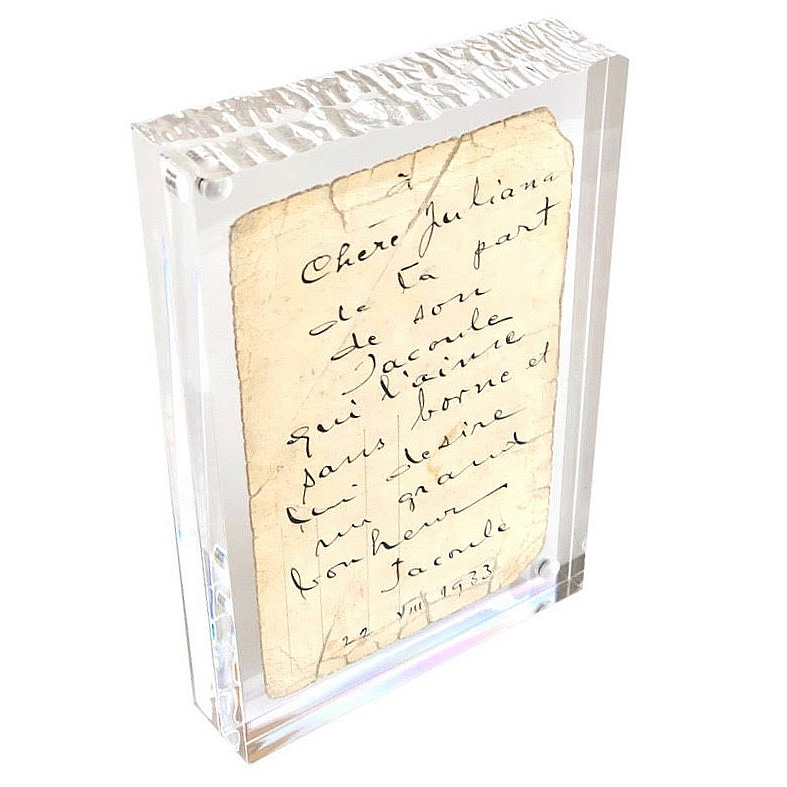 à
Chère Juliana
de la part
de son
Jacoule
qui l'aime
sans borne et
lui desire
un grand
bonheur
Jacoule
22 VIII 1933